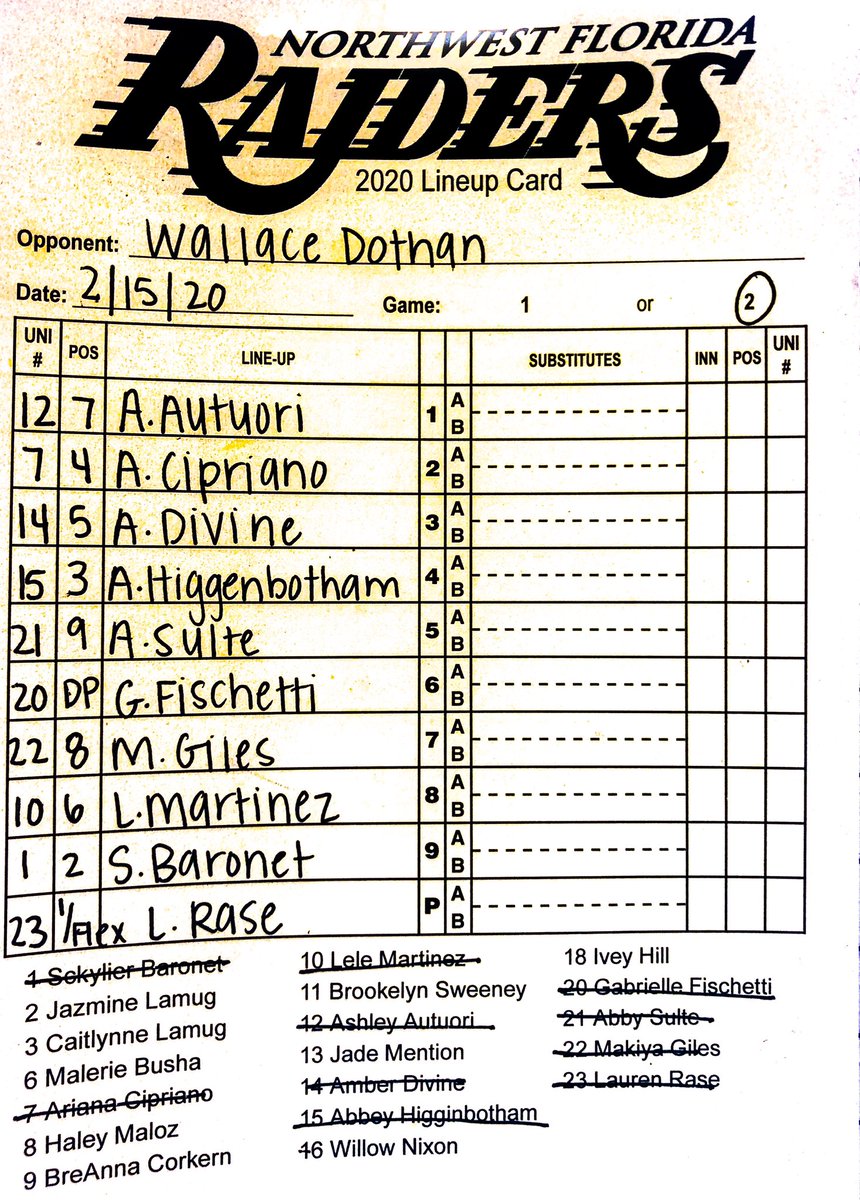 NORTHWEST FLORIDA
RAIDERS
2020 Lineup Card
Opponent: Wallace Dothan
Date: 2/15/20 Game: 1 or 2
UNI # POS LINE-UP SUBSTITUTES INN POS UNI #
12 7 A. Autuori 1 A B
7 4 A. Cipriano 2 A B
14 5 A. Divine 3 A B
15 3 A. Higgenbotham 4 A B
21 9 A. Sulte 5 A B
20 DP G. Fischetti 6 A B
22 8 M. Giles 7 A B
10 6 L. Martinez 8 A B
1 2 S. Baronet 9 A B
23 1/Flex L. Rase P A B
1 Sckylier Baronet
2 Jazmine Lamug
3 Caitlynne Lamug
6 Malerie Busha
7 Ariana Cipriano
8 Haley Maloz
9 BreAnna Corkern
10 Lele Martinez
11 Brookelyn Sweeney
12 Ashley Autuori
13 Jade Mention
14 Amber Divine
15 Abbey Higginbotham
16 Willow Nixon
18 Ivey Hill
20 Gabrielle Fischetti
21 Abby Sulte
22 Makiya Giles
23 Lauren Rase